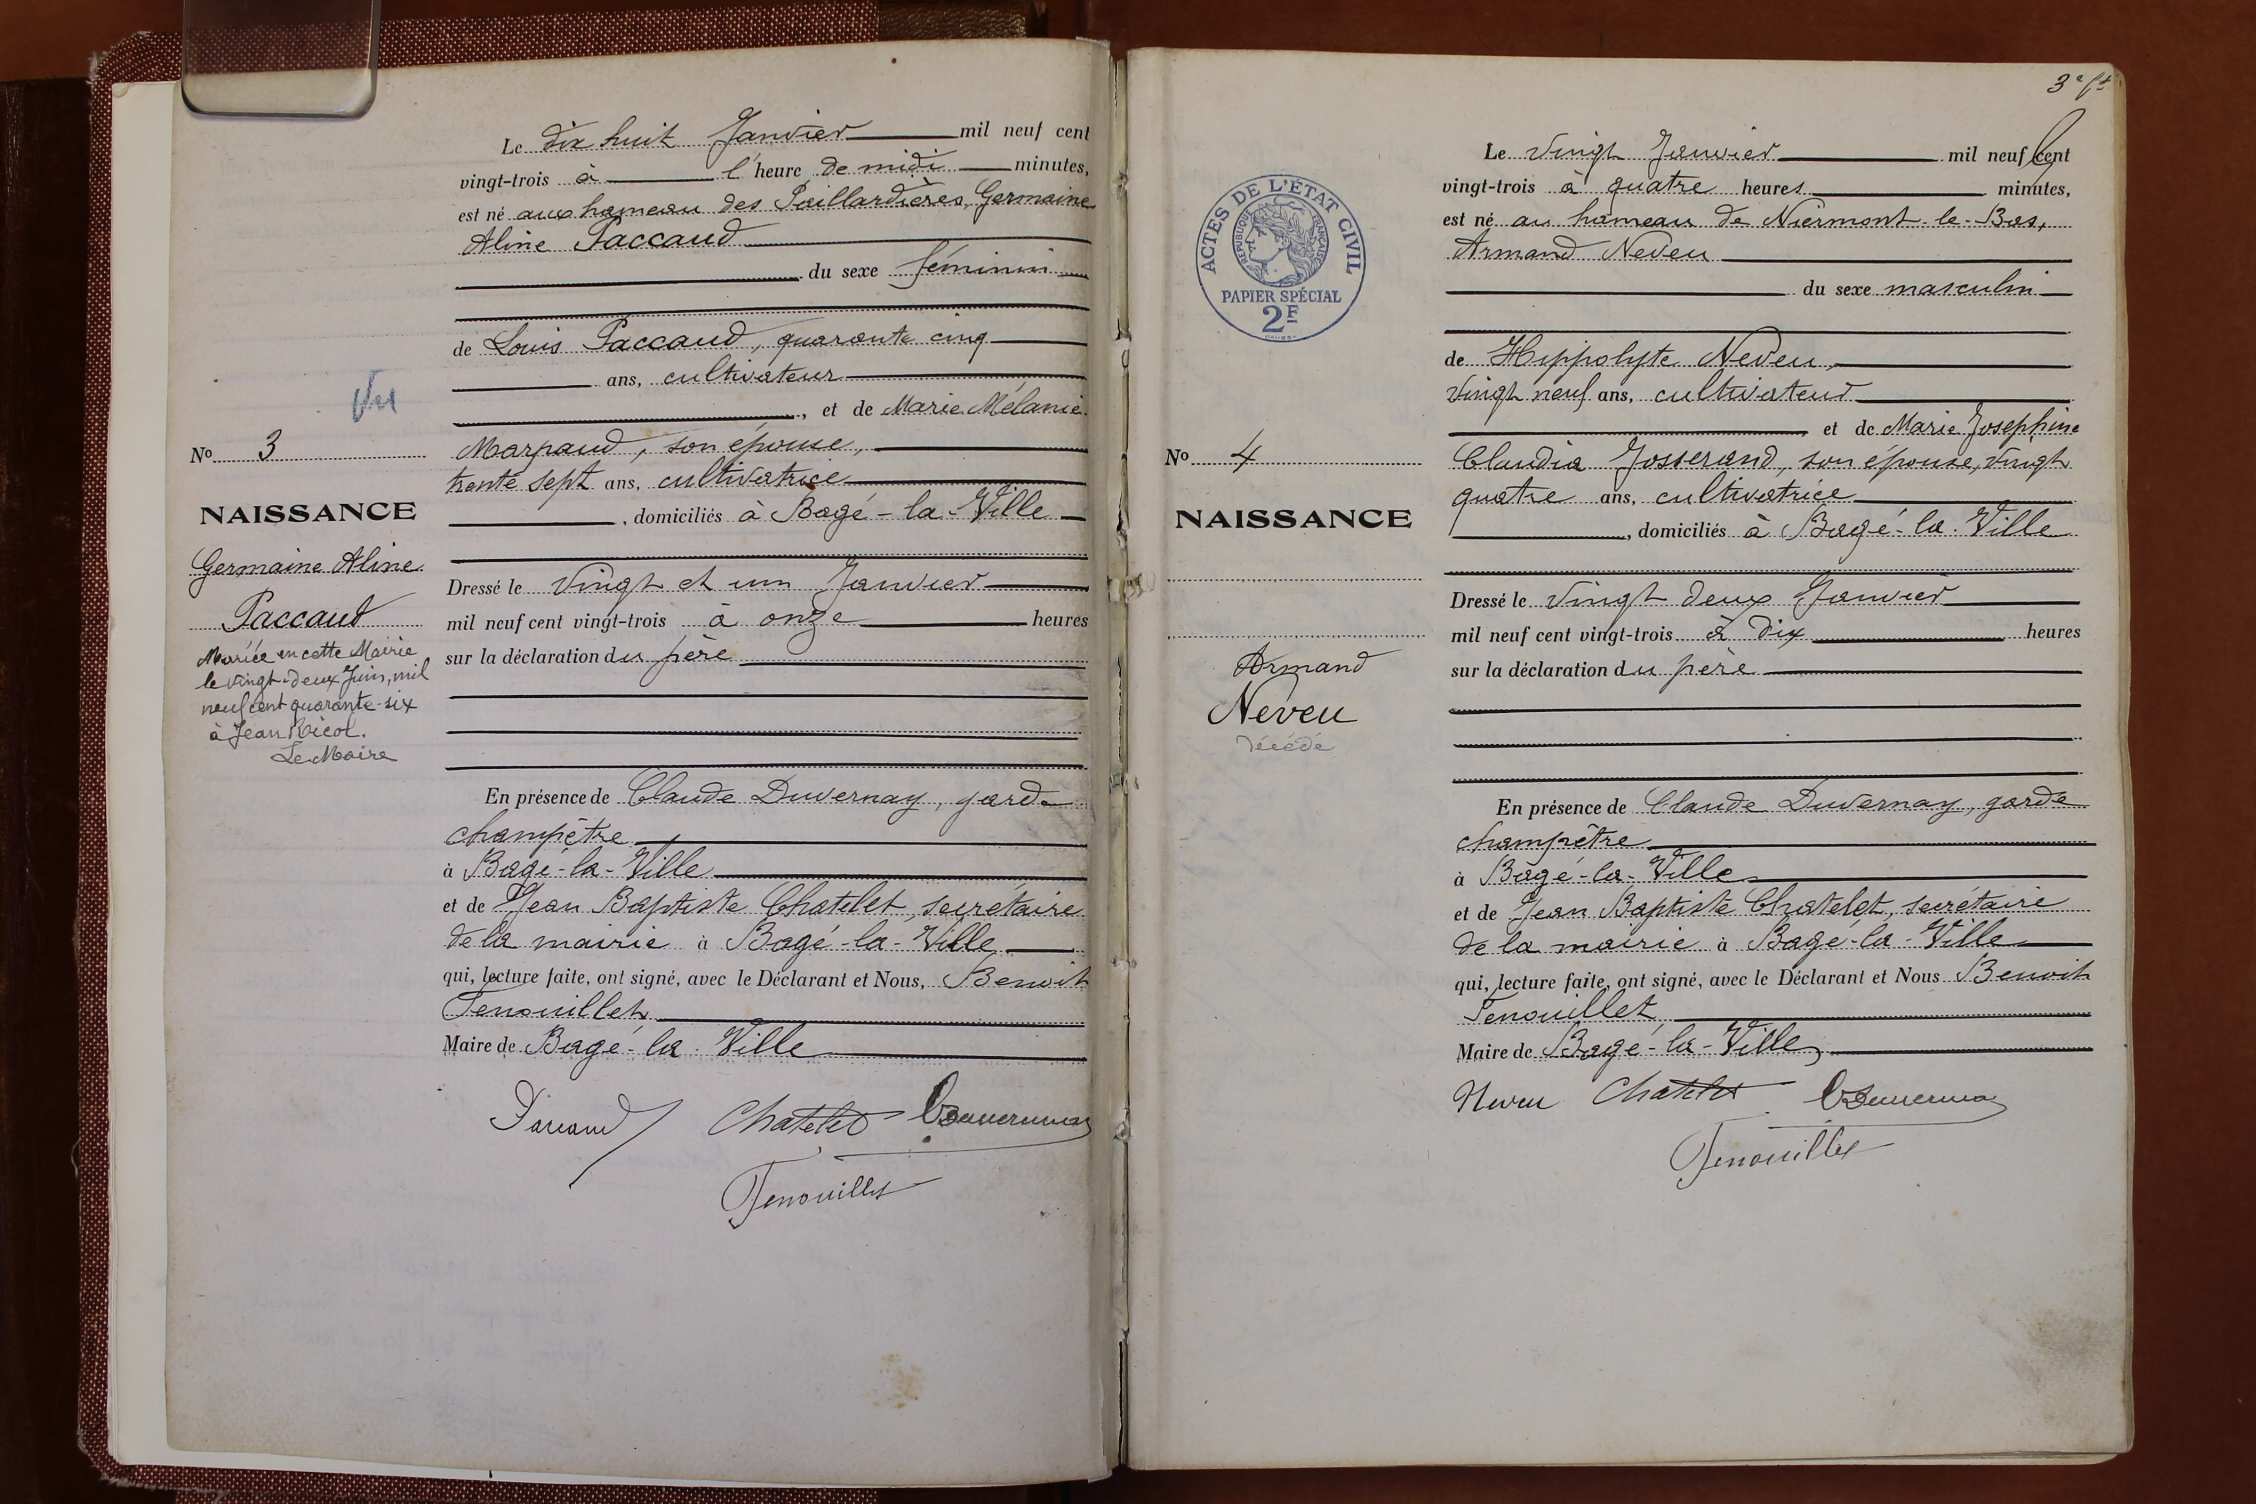 Le dix huit Janvier mil neuf cent
vingt-trois à l'heure de midi minutes,
est né aux hameau des Paillardières, Germaine
Aline Paccaud
du sexe féminin
de Louis Paccaud, quarante cinq
ans, cultivateur
, et de Marie Mélanie
Marpaud, son épouse,
trente sept ans, cultivatrice
, domiciliés à Bagé-la-Ville
Dressé le vingt et un Janvier
mil neuf cent vingt-trois à onze heures
sur la déclaration du père
En présence de Claude Duvernay, garde
champêtre
à Bagé-la-Ville
et de Jean Baptiste Chatelet, secrétaire
de la mairie à Bagé-la-Ville
qui, lecture faite, ont signé, avec le Déclarant et Nous, Benoit
Fenouillet
Maire de Bagé-la-Ville
Paccaud Chatelet
Fenouillet
Vu
No 3
NAISSANCE
Germaine Aline
Paccaud
Mariée en cette Mairie
le vingt-deux Juin, mil
neuf cent quarante-six
à Jean Ricol.
Le Maire
3e ft
Le vingt Janvier mil neuf cent
vingt-trois à quatre heures minutes,
est né au hameau de Niermont-le-Bas,
Armand Neveu
du sexe masculin
de Hippolyte Neveu,
vingt neuf ans, cultivateur
et de Marie Joséphine
Claudia Josserand, son épouse, vingt
quatre ans, cultivatrice
, domiciliés à Bagé-la-Ville
Dressé le vingt deux Janvier
mil neuf cent vingt-trois à dix heures
sur la déclaration du père
En présence de Claude Duvernay, garde
champêtre
à Bagé-la-Ville
et de Jean Baptiste Chatelet, secrétaire
de la mairie à Bagé-la-Ville
qui, lecture faite, ont signé, avec le Déclarant et Nous Benoit
Fenouillet
Maire de Bagé-la-Ville
Neveu Chatelet
Fenouillet
ACTES DE L'ÉTAT CIVIL
RÉPUBLIQUE FRANÇAISE
PAPIER SPÉCIAL
2F
No 4
NAISSANCE
Armand
Neveu
décédé